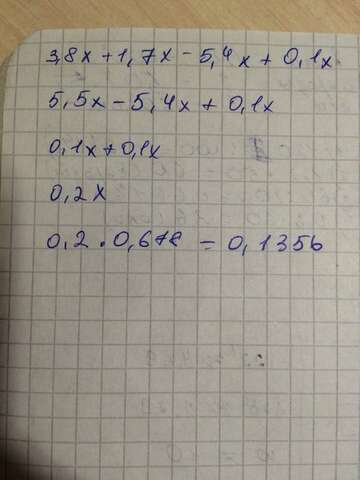 3,8x + 1,7x - 5,4x + 0,1x
5,5x - 5,4x + 0,1x
0,1x + 0,1x
0,2x
0,2 . 0,678 = 0,1356